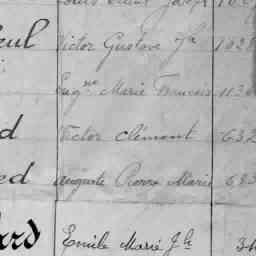 eul Victor Gustave Jh 1028
Eugne Marie Francois 1130
d Victor Clément 632
ed Auguste Pierre Marie 683
ard Emile Marie Jh 34